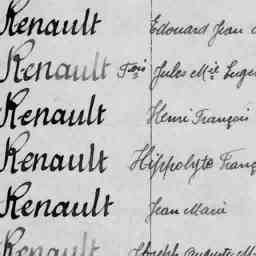 Renault Edouard Jean
Renault Fois Jules Mie Eugè
Renault Henri François
Renault Hippolyte Franç
Renault Jean Marie
Renault Joseph Auguste M